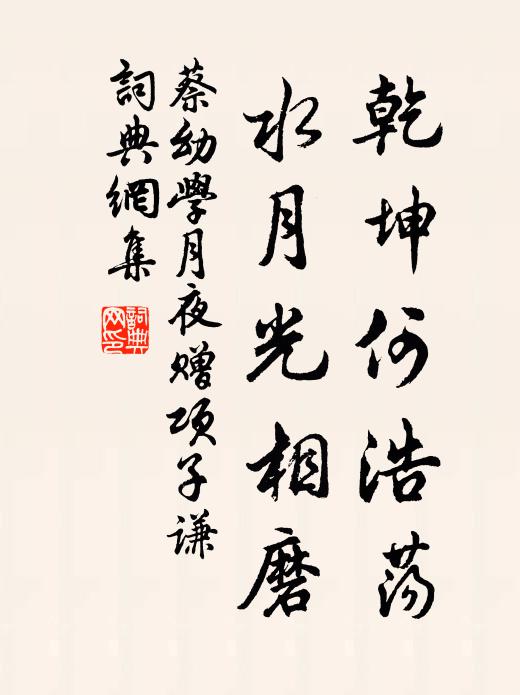 乾坤何浩荡
水月光相磨
蔡幼學月夜赠项子谦
詞典網集
詞典网印